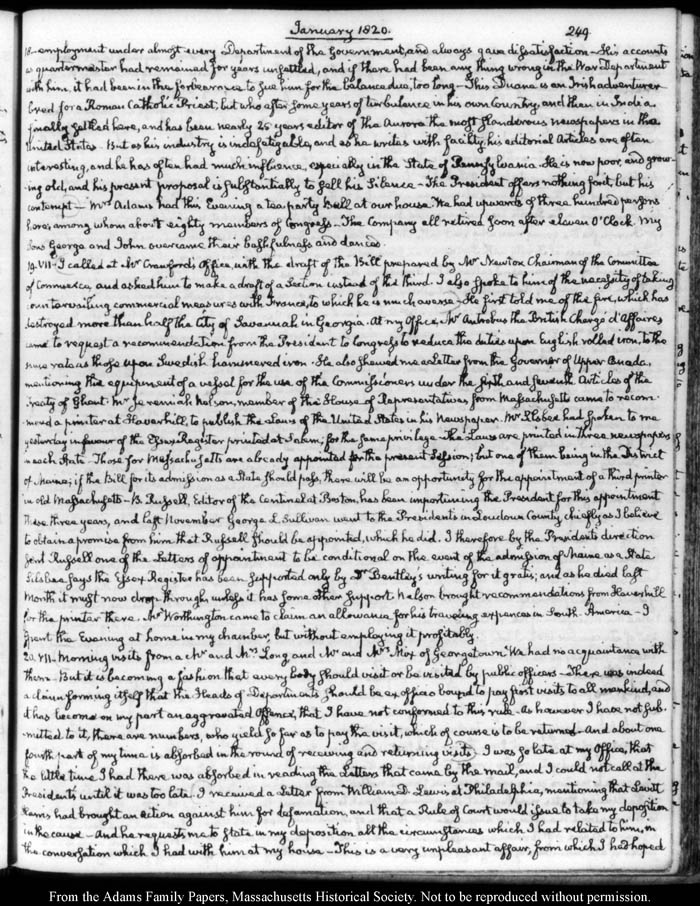 January 1820.
249
18— employment under almost every Department of the Government, and always gave dissatisfaction— His accounts
as quartermaster had remained for years unsettled, and if there had been any thing wrong in the War Department
with him, it had been in the forbearance to sue him for the balance due, too long— This Duane is an Irish adventurer
bred for a Roman Catholic Priest; but who after some years of turbulence in his own Country, and then in India
finally settled here, and has been nearly 25 years editor of the Aurora the most slanderous newspapers in the
United States. But as his industry is indefatigable, and as he writes with facility, his editorial Articles are often
interesting, and he has often had much influence, especially in the State of Pennsylvania. He is now poor, and grow-
ing old, and his present proposal is substantially to sell his Silence— The President offers nothing for it, but his
contempt— Mrs Adams had this Evening a tea party Ball at our house. We had upwards of three hundred persons
here, among whom about eighty members of Congress— The Company all retired soon after eleven O'Clock. My
Sons George and John overcame their bashfulness and danced.
19. VII. I called at Mr Crawford's Office, with the draft of the Bill prepared by Mr Newton Chairman of the Committee
of Commerce, and asked him to make a draft of a Section instead of the third. I also spoke to him of the necessity of taking
countervailing commercial measures with France, to which he is much averse— He first told me of the fire, which has
destroyed more than half the City of Savannah in Georgia. At my Office, Mr Antrobus the British Chargé d'Affaires
came to request a recommendation from the President to Congress to reduce the duties upon English rolled iron, to the
same rate as those upon Swedish hammered iron. He also shewed me a Letter from the Governor of Upper Canada,
mentioning the equipment of a vessel for the use of the Commissioners under the sixth and seventh Articles of the
Treaty of Ghent. Mr Jeremiah Nelson, member of the House of Representatives from Massachusetts came to recom-
mend a printer at Haverhill, to publish the Laws of the United States in his Newspaper. Mr Silsbee had spoken to me
yesterday in favour of the Essex Register printed at Salem, for the same privilege— The Laws are printed in three newspapers
in each State. Those for Massachusetts are already appointed for the present Session; but one of them being in the District
of Maine; if the Bill for its admission as a State should pass, there will be an opportunity for the appointment of a third printer
in old Massachusetts— B. Russell, Editor of the Centinel at Boston, has been importuning the President for this appointment
these three years, and last November George L. Sullivan went to the Presidents in Loudoun County, chiefly as I believe
to obtain a promise from him that Russell should be appointed, which he did. I therefore by the President's direction
sent Russell one of the Letters of appointment to be conditional on the event of the admission of Maine as a State
Silsbee says the Essex Register has been supported only by Dr Bentley's writing for it gratis; and as he died last
Month it must now drop through, unless it has some other support. Nelson brought recommendations from Haverhill
for the printer there. Mr Worthington came to claim an allowance for his traveling expences in South America— I
spent the Evening at home in my chamber, but without employing it profitably.
20. VII. Morning visits from a Mr and Mrs Long, and Mr and Mrs Mix of Georgetown. We had no acquaintance with
them— But it is becoming a fashion that every body should visit or be visited by public officers— There was indeed
a claim forming itself that the Heads of Departments should be ex officio bound to pay first visits to all mankind, and
it has become on my part an aggravated Offence, that I have not conformed to this rule. As however I have not sub-
mitted to it, there are numbers, who yield so far as to pay the visit, which of course is to be returned— And about one
fourth part of my time is absorbed in the round of receiving and returning visits. I was so late at my Office, that
the little time I had there was absorbed in reading the Letters that came by the mail, and I could not call at the
Presidents until it was too late. I received a Letter from William D. Lewis at Philadelphia, mentioning that Levitt
Harris had brought an action against him for defamation, and that a Rule of Court would issue to take my deposition
in the cause— And he requests me to state in my deposition all the circumstances which I had related to him, in
the conversation which I had with him at my house— This is a very unpleasant affair, from which I had hoped
From the Adams Family Papers, Massachusetts Historical Society. Not to be reproduced without permission.